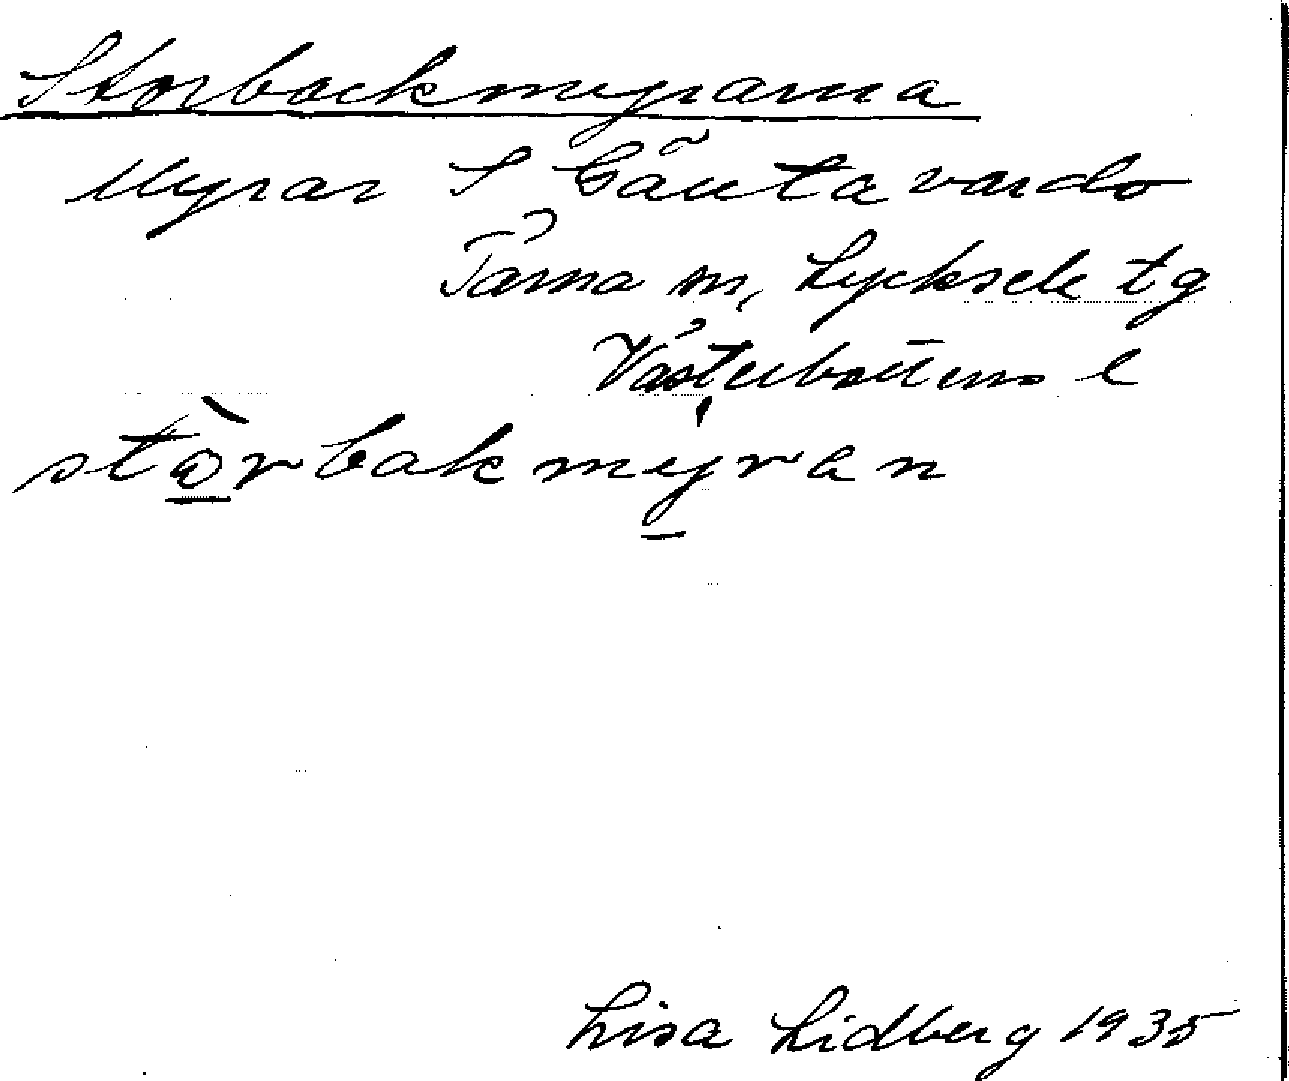 Storbackmyrarna
Myrar S Gäutavardo
Tärna sn, Lycksele tg
Västerbottens l
stòrbakmyran
Lisa Lidberg 1935